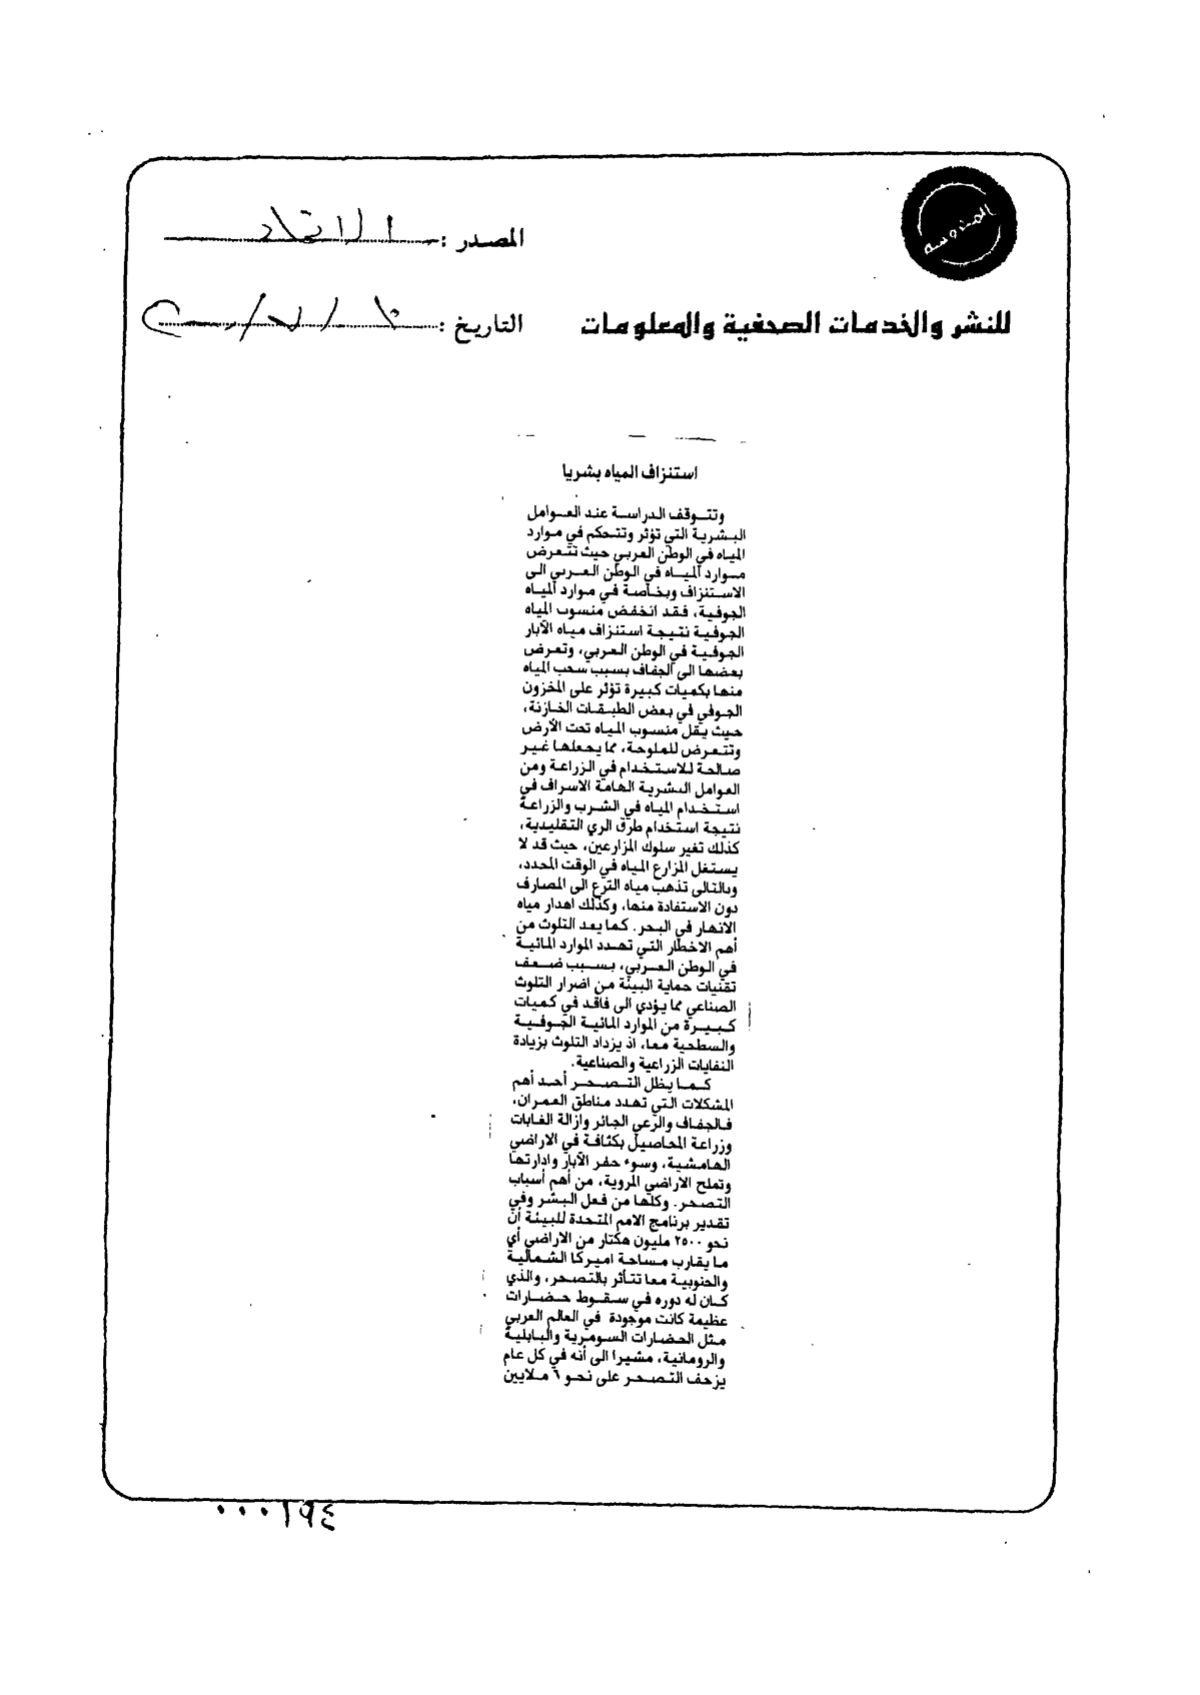 المصدر : الاتحاد
للنشر والخدمات الصحفية والمعلومات
التاريخ :
استنزاف المياه بشريا
وتتوقف الدراسة عند العوامل
البشرية التي تؤثر وتتحكم في موارد
المياه في الوطن العربي حيث تتعرض
موارد المياه في الوطن العربي الى
الاستنزاف وبخاصة في موارد المياه
الجوفية، فقد انخفض منسوب المياه
الجوفية نتيجة استنزاف مياه الآبار
الجوفية في الوطن العربي، وتعرض
بعضها الى الجفاف بسبب سحب المياه
منها بكميات كبيرة تؤثر على المخزون
الجوفي في بعض الطبقات الخازنة،
حيث يقل منسوب المياه تحت الأرض
وتتعرض للملوحة، مما يجعلها غير
صالحة للاستخدام في الزراعة ومن
العوامل البشرية الهامة الاسراف في
استخدام المياه في الشرب والزراعة
نتيجة استخدام طرق الري التقليدية،
كذلك تغير سلوك المزارعين، حيث قد لا
يستغل المزارع المياه في الوقت المحدد،
وبالتالى تذهب مياه الترع الى المصارف
دون الاستفادة منها، وكذلك اهدار مياه
الانهار في البحر. كما يعد التلوث من
أهم الاخطار التي تهدد الموارد المائية
في الوطن العربي، بسبب ضعف
تقنيات حماية البيئة من اضرار التلوث
الصناعي مما يؤدي الى فاقد في كميات
كبيرة من الموارد المائية الجوفية
والسطحية معا، اذ يزداد التلوث بزيادة
النفايات الزراعية والصناعية.
كما يظل التصحر أحد أهم
المشكلات التي تهدد مناطق العمران،
فالجفاف والرعي الجائر وازالة الغابات
وزراعة المحاصيل بكثافة في الاراضي
الهامشية، وسوء حفر الآبار وادارتها
وتملح الاراضي المروية، من أهم أسباب
التصحر. وكلها من فعل البشر وفي
تقدير برنامج الامم المتحدة للبيئة أن
نحو ٢٥٠٠ مليون هكتار من الاراضي أي
ما يقارب مساحة اميركا الشمالية
والجنوبية معا تتأثر بالتصحر، والذي
كان له دوره في سقوط حضارات
عظيمة كانت موجودة في العالم العربي
مثل الحضارات السومرية والبابلية
والرومانية، مشيرا الى أنه في كل عام
يزحف التصحر على نحو ٦ ملايين
٠٠٠١٩٤